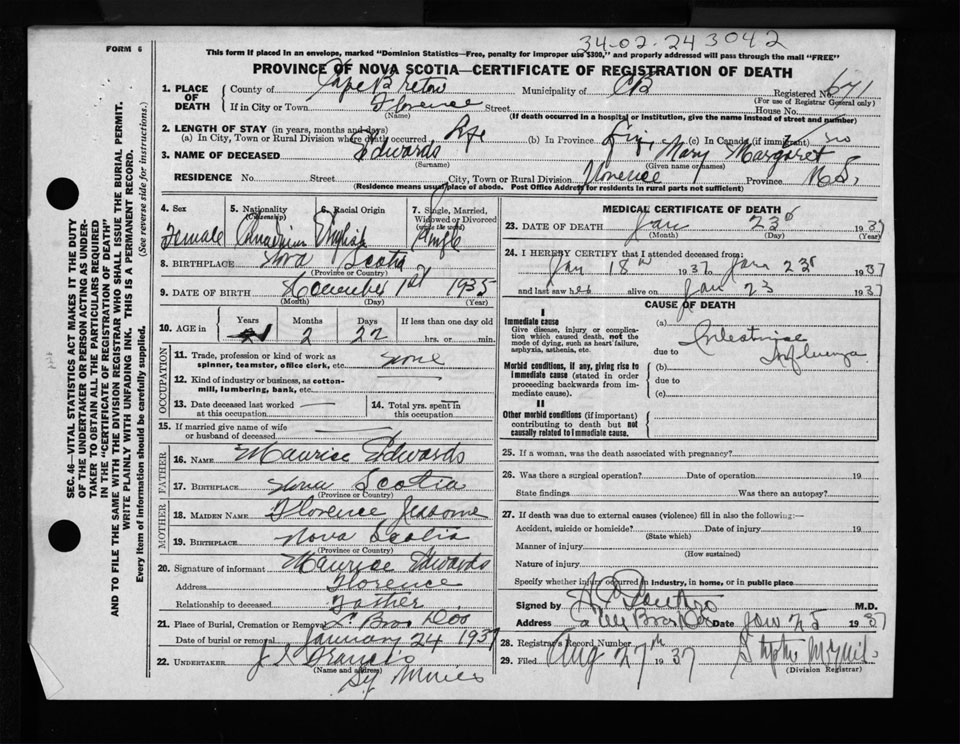 FORM 6
34-02-243042
This form if placed in an envelope, marked "Dominion Statistics—Free, penalty for improper use $300," and properly addressed will pass through the mail "FREE"
PROVINCE OF NOVA SCOTIA—CERTIFICATE OF REGISTRATION OF DEATH
1. PLACE OF DEATH
County of Cape Breton Municipality of CB Registered No. 671
(For use of Registrar General only)
If in City or Town Florence Street House No.
(Name) (If death occurred in a hospital or institution, give the name instead of street and number)
2. LENGTH OF STAY (in years, months and days)
(a) In City, Town or Rural Division where death occurred Life (b) In Province Life (c) In Canada (if immigrant)
3. NAME OF DECEASED Edwards Mary Margaret
(Surname) (Given name or names)
RESIDENCE No. Street City, Town or Rural Division Florence Province N.S.
(Residence means usual place of abode. Post Office Address for residents in rural parts not sufficient)
4. Sex 5. Nationality (Citizenship) 6. Racial Origin 7. Single, Married, Widowed or Divorced (write the word)
Female Canadian English Single
8. BIRTHPLACE Nova Scotia
(Province or Country)
9. DATE OF BIRTH November 1st 1935
(Month) (Day) (Year)
10. AGE in Years Months Days If less than one day old
2 22 hrs. or min.
OCCUPATION
11. Trade, profession or kind of work as spinner, teamster, office clerk, etc. none
12. Kind of industry or business, as cotton-mill, lumbering, bank, etc.
13. Date deceased last worked at this occupation
14. Total yrs. spent in this occupation
15. If married give name of wife or husband of deceased
FATHER
16. NAME Maurice Edwards
17. BIRTHPLACE Nova Scotia
(Province or Country)
MOTHER
18. MAIDEN NAME Florence Jessome
19. BIRTHPLACE Nova Scotia
(Province or Country)
20. Signature of informant Maurice Edwards
Address Florence
Relationship to deceased Father
21. Place of Burial, Cremation or Removal L. Bras D'or
Date of burial or removal January 24 1937
22. UNDERTAKER
(Name and address)
Sy. Mines
MEDICAL CERTIFICATE OF DEATH
23. DATE OF DEATH Jan 23 1937
(Month) (Day) (Year)
24. I HEREBY CERTIFY that I attended deceased from:
Jan 18th 1937 to Jan 23 1937
and last saw her alive on Jan 23 1937
CAUSE OF DEATH
I
Immediate cause
Give disease, injury or complication which caused death, not the mode of dying, such as heart failure, asphyxia, asthenia, etc.
(a) Intestinal
due to Influenza
Morbid conditions, if any, giving rise to immediate cause (stated in order proceeding backwards from immediate cause).
(b)
due to
(c)
II
Other morbid conditions (if important) contributing to death but not causally related to immediate cause.
25. If a woman, was the death associated with pregnancy?
26. Was there a surgical operation? Date of operation 19
State findings Was there an autopsy?
27. If death was due to external causes (violence) fill in also the following:—
Accident, suicide or homicide? Date of injury 19
(State which)
Manner of injury
(How sustained)
Nature of injury
Specify whether injury occurred in industry, in home, or in public place
Signed by M.D.
Address Date Jan 25 1937
28. Registrar's Record Number
29. Filed Aug 27th 1937
(Division Registrar)
SEC. 46—VITAL STATISTICS ACT MAKES IT THE DUTY
OF THE UNDERTAKER OR PERSON ACTING AS UNDER-
TAKER TO OBTAIN ALL THE PARTICULARS REQUIRED
IN THE "CERTIFICATE OF REGISTRATION OF DEATH"
AND TO FILE THE SAME WITH THE DIVISION REGISTRAR WHO SHALL ISSUE THE BURIAL PERMIT.
WRITE PLAINLY WITH UNFADING INK. THIS IS A PERMANENT RECORD.
Every item of information should be carefully supplied. (See reverse side for instructions.)